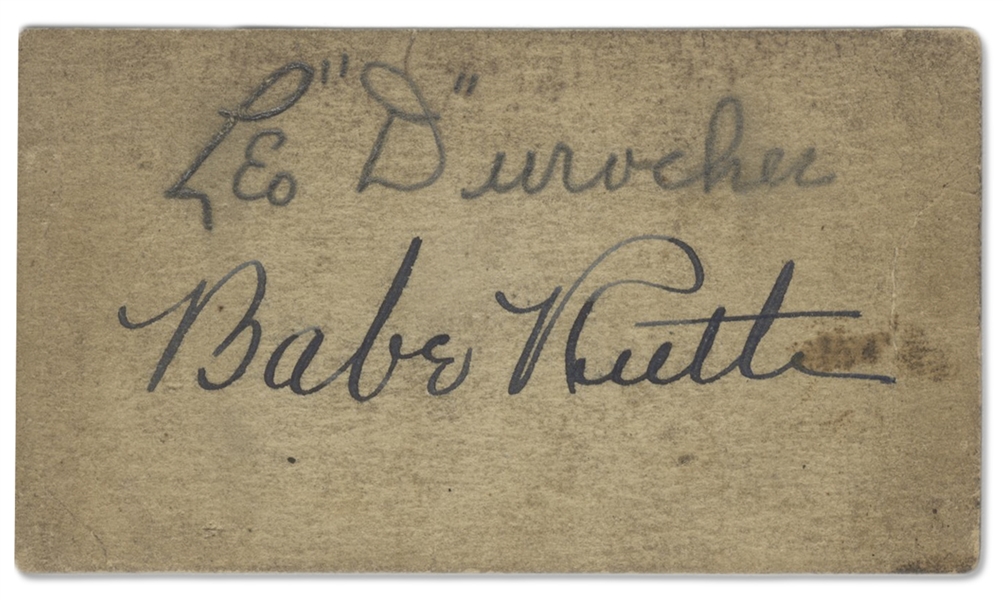 Leo "D"urocher
Babe Ruth